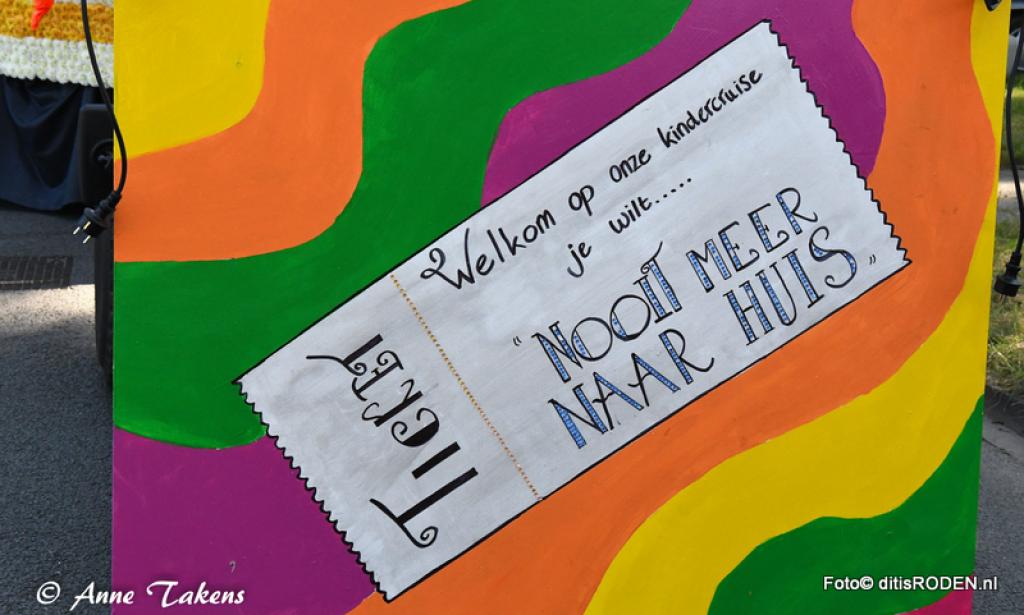 TICKET
Welkom op onze kindercruise
je wilt.....
"NOOIT MEER
NAAR HUIS"
© Anne Takens
Foto© ditisRODEN.nl